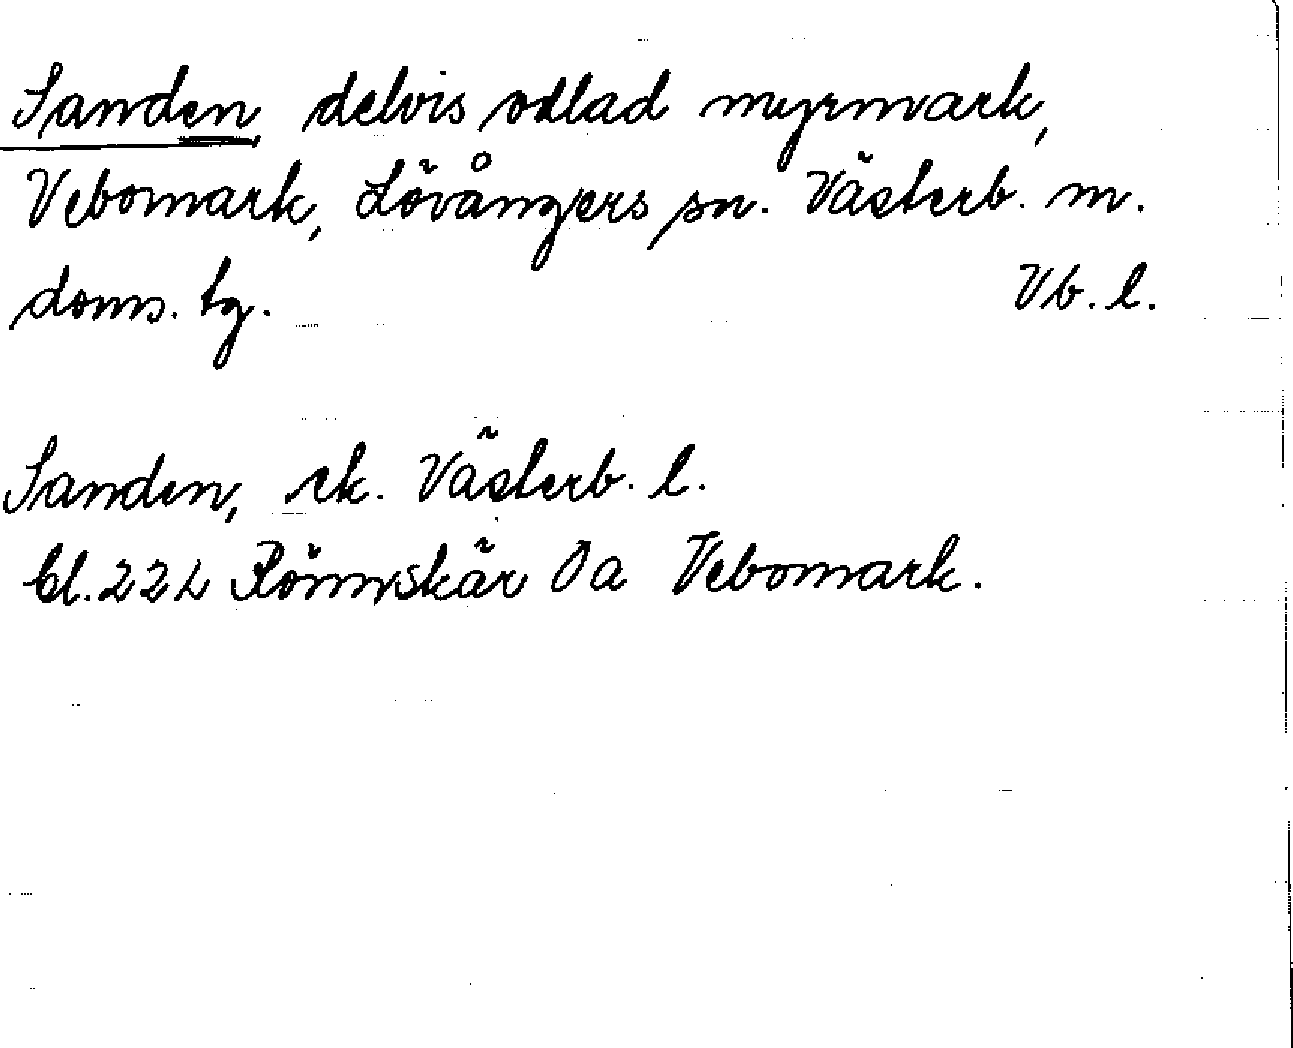 Sanden, delvis odlad myrmark,
Vebomark, Lövångers sn. Västerb. m.
doms. tg. Vb. l.
Sanden, ek. Västerb. l.
Bl. 22L Rönnskär Öa Vebomark.